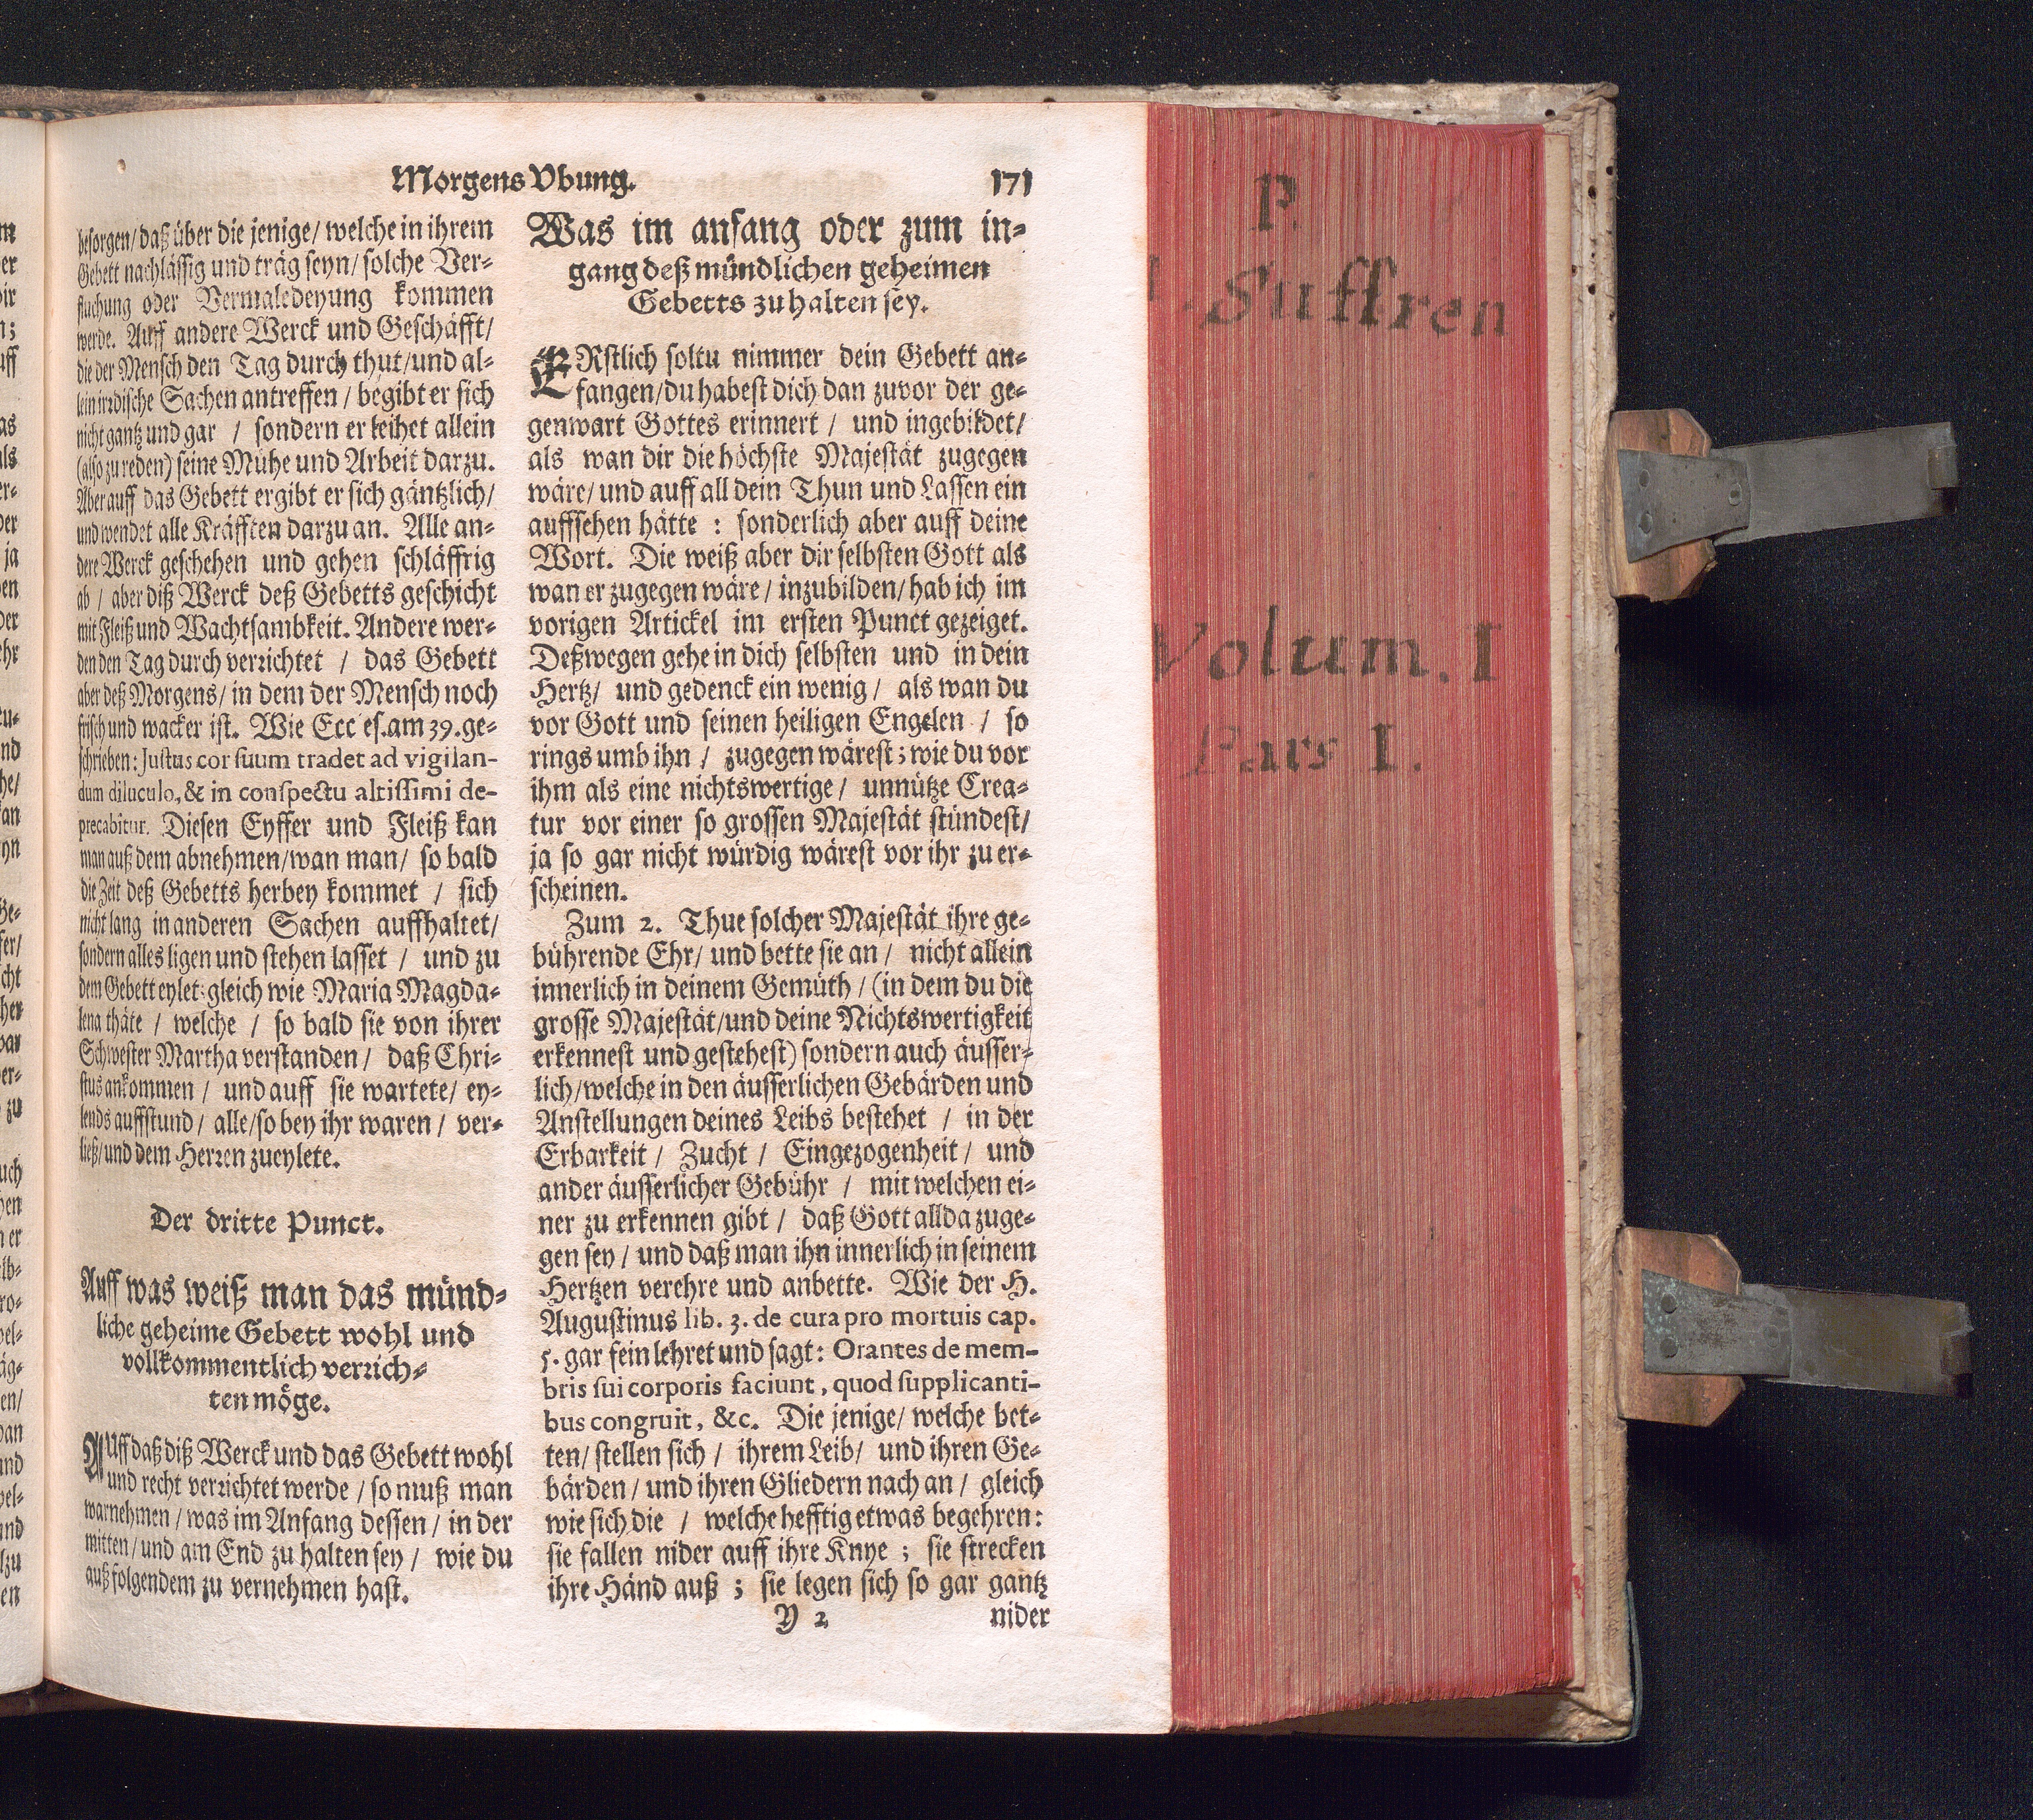 Morgens Vbung.
171
besorgen/ daß über die jenige/ welche in ihrem
Gebett nachlässig und träg seyn/ solche Ver-
fluchung oder Vermaledeyung kommen
werde. Auff andere Werck und Geschäfft/
die der Mensch den Tag durch thut/ und al-
lein irrdische Sachen antreffen / begibt er sich
nicht gantz und gar / sondern er leihet allein
(also zu reden) seine Mühe und Arbeit darzu.
Aber auff das Gebett ergibt er sich gäntzlich/
und wendet alle Kräfften darzu an. Alle an-
dere Werck geschehen und gehen schläffrig
ab / aber diß Werck deß Gebetts geschicht
mit Fleiß und Wachtsambkeit. Andere wer-
den den Tag durch verrichtet / das Gebett
aber deß Morgens/ in dem der Mensch noch
frisch und wacker ist. Wie Ecc es. am 39. ge-
schrieben: Justus cor suum tradet ad vigilan-
dum diluculo, & in conspectu altissimi de-
precabitur. Diesen Eyffer und Fleiß kan
man auß dem abnehmen/ wan man/ so bald
die Zeit deß Gebetts herbey kommet / sich
nicht lang in anderen Sachen auffhaltet/
sondern alles ligen und stehen lasset / und zu
dem Gebett eylet: gleich wie Maria Magda-
lena thäte / welche / so bald sie von ihrer
Schwester Martha verstanden/ daß Chri-
stus ankommen / und auff sie wartete/ ey-
lends auffstund/ alle/ so bey ihr waren/ ver-
ließ/ und dem Herren zueylete.
Der dritte Punct.
Auff was weiß man das münd-
liche geheime Gebett wohl und
vollkommentlich verrich-
ten möge.
AUff daß diß Werck und das Gebett wohl
und recht verrichtet werde / so muß man
warnehmen / was im Anfang dessen/ in der
mitten/ und am End zu halten sey / wie du
auß folgendem zu vernehmen hast.
Was im anfang oder zum in-
gang deß mündlichen geheimen
Gebetts zu halten sey.
ERstlich soltu nimmer dein Gebett an-
fangen/ du habest dich dan zuvor der ge-
genwart Gottes erinnert / und ingebildet/
als wan dir die höchste Majestät zugegen
wäre/ und auff all dein Thun und Lassen ein
auffsehen hätte : sonderlich aber auff deine
Wort. Die weiß aber dir selbsten Gott als
wan er zugegen wäre/ inzubilden/ hab ich im
vorigen Artickel im ersten Punct gezeiget.
Deßwegen gehe in dich selbsten und in dein
Hertz/ und gedenck ein wenig/ als wan du
vor Gott und seinen heiligen Engelen / so
rings umb ihn / zugegen wärest; wie du vor
ihm als eine nichtswertige/ unnütze Crea-
tur vor einer so grossen Majestät stündest/
ja so gar nicht würdig wärest vor ihr zu er-
scheinen.
Zum 2. Thue solcher Majestät ihre ge-
bührende Ehr/ und bette sie an/ nicht allein
innerlich in deinem Gemüth/ (in dem du die
grosse Majestät/ und deine Nichtswertigkeit
erkennest und gestehest) sondern auch äusser-
lich/ welche in den äusserlichen Gebärden und
Anstellungen deines Leibs bestehet / in der
Erbarkeit / Zucht / Eingezogenheit/ und
ander äusserlicher Gebühr / mit welchen ei-
ner zu erkennen gibt / daß Gott allda zuge-
gen sey / und daß man ihn innerlich in seinem
Hertzen verehre und anbette. Wie der H.
Augustinus lib. 3. de cura pro mortuis cap.
5. gar fein lehret und sagt: Orantes de mem-
bris sui corporis faciunt, quod supplicanti-
bus congruit, &c. Die jenige/ welche bet-
ten/ stellen sich / ihrem Leib/ und ihren Ge-
bärden/ und ihren Gliedern nach an / gleich
wie sich die / welche hefftig etwas begehren:
sie fallen nider auff ihre Knye ; sie strecken
ihre Händ auß ; sie legen sich so gar gantz
Y 2
nider
P.
Suffren
Volum. I
Pars I.